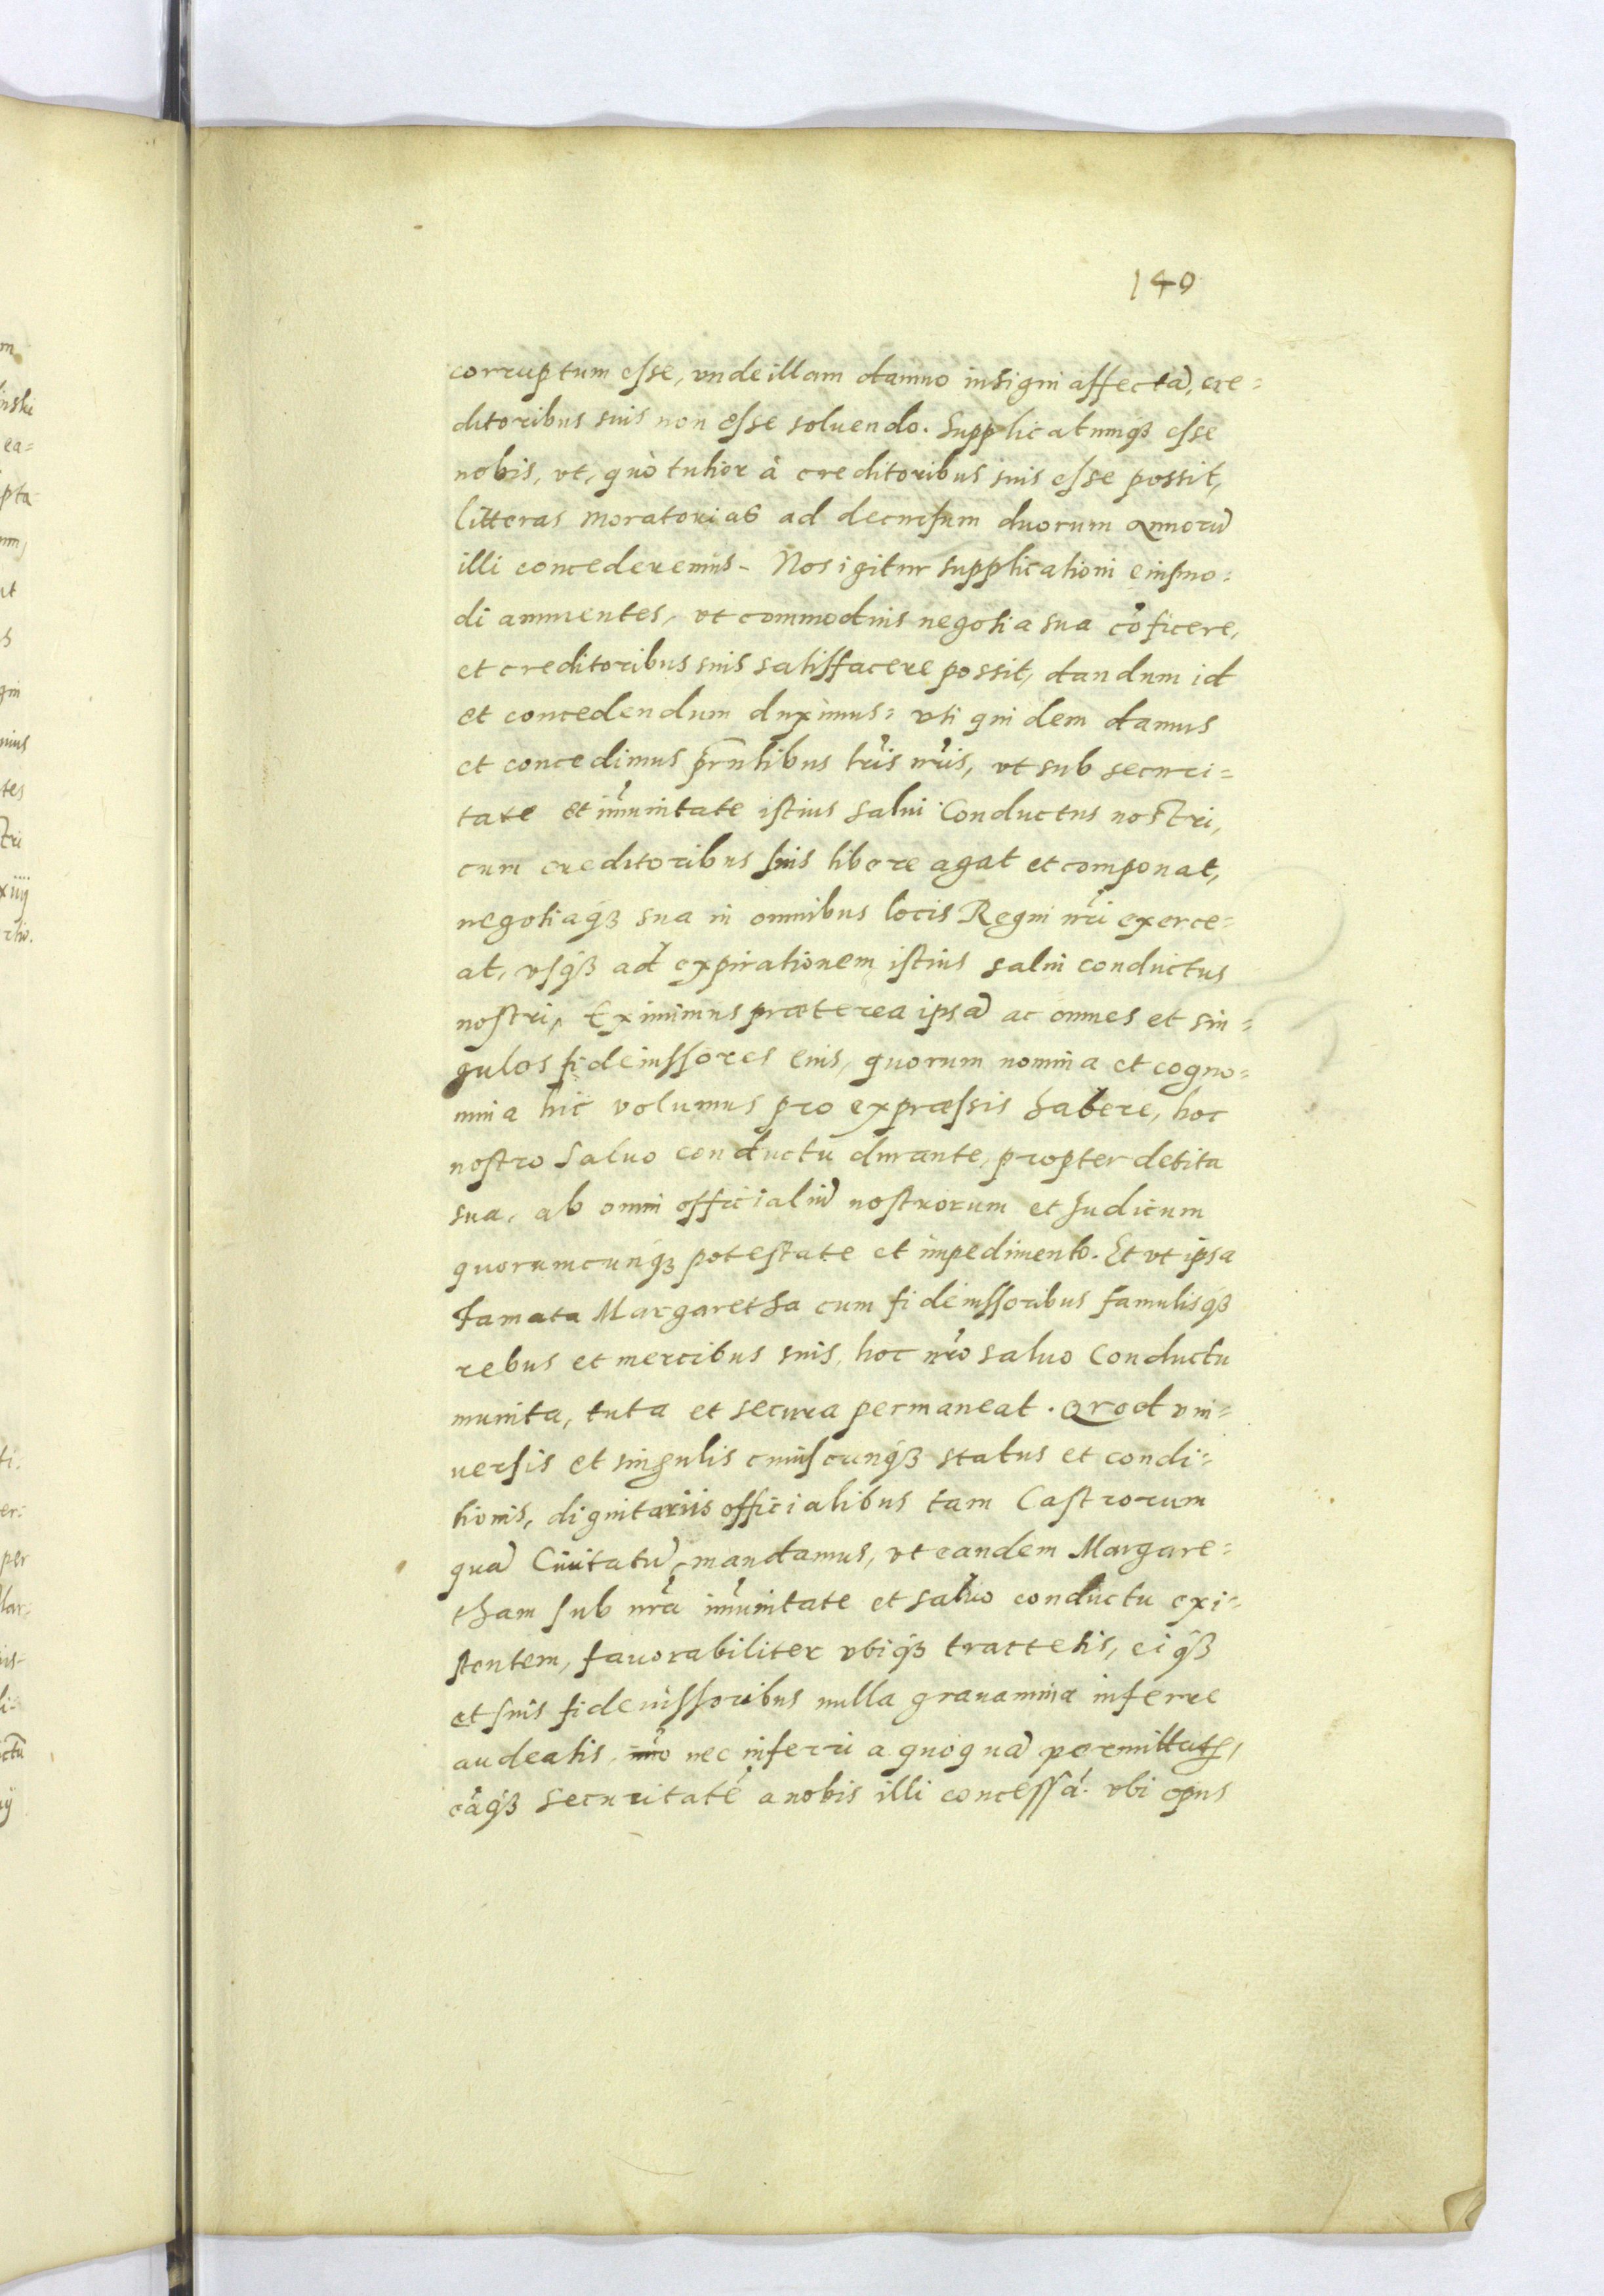 140
corruptum esse, vnde illam damno insigni affectã, cre=
ditoribus suis non esse soluendo. Supplicatumqꝫ esse
nobis, vt, quò tutior à creditoribus suis esse possit,
litteras moratorias ad decursum duorum annorũ
illi concederemus. Nos igitur supplicationi eiusmo=
di annuentes, vt commodius negotia sua cõficere,
et creditoribus suis satisfacere possit, dandum id
et concedendum duximus: vti quidem damus
et concedimus prñtibus lr̃is nr̃is, vt sub securi=
tate et im̃unitate istius salui Conductus nostri,
cum creditoribus suis libere agat et componat,
negotiaqꝫ sua in omnibus locis Regni nr̃i exerce=
at, vsqꝫ ad expirationem istius salui conductus
nostri, Eximimus præterea ipsã ac omnes et sin=
gulos fideiussores eius, quorum nomina et cogno=
mina hic volumus pro expræssis habere, hoc
nostro saluo conductu durante, propter debita
sua, ab omni officialiũ nostrorum et Iudicum
quorumcunqꝫ potestate et impedimento. Et vt ipsa
famata Margaretha cum fideiussoribus famulisqꝫ
rebus et mercibus suis, hoc nr̃o saluo Conductu
munita, tuta et secura permaneat. Quod vni=
uersis et singulis cuiuscunqꝫ status et condi=
tionis, dignitariis officialibus tam Castrorum
quã Ciuitatũ, mandamus, vt eandem Margare=
tham sub nr̃a im̃unitate et saluo conductu exi=
stentem, fauorabiliter vbiqꝫ tractetis, eiqꝫ
et suis fideiussoribus nulla grauamina inferre
audeatis, nec inferri a quoquã permittatis,
eãqꝫ securitatẽ a nobis illi concessã. vbi opus